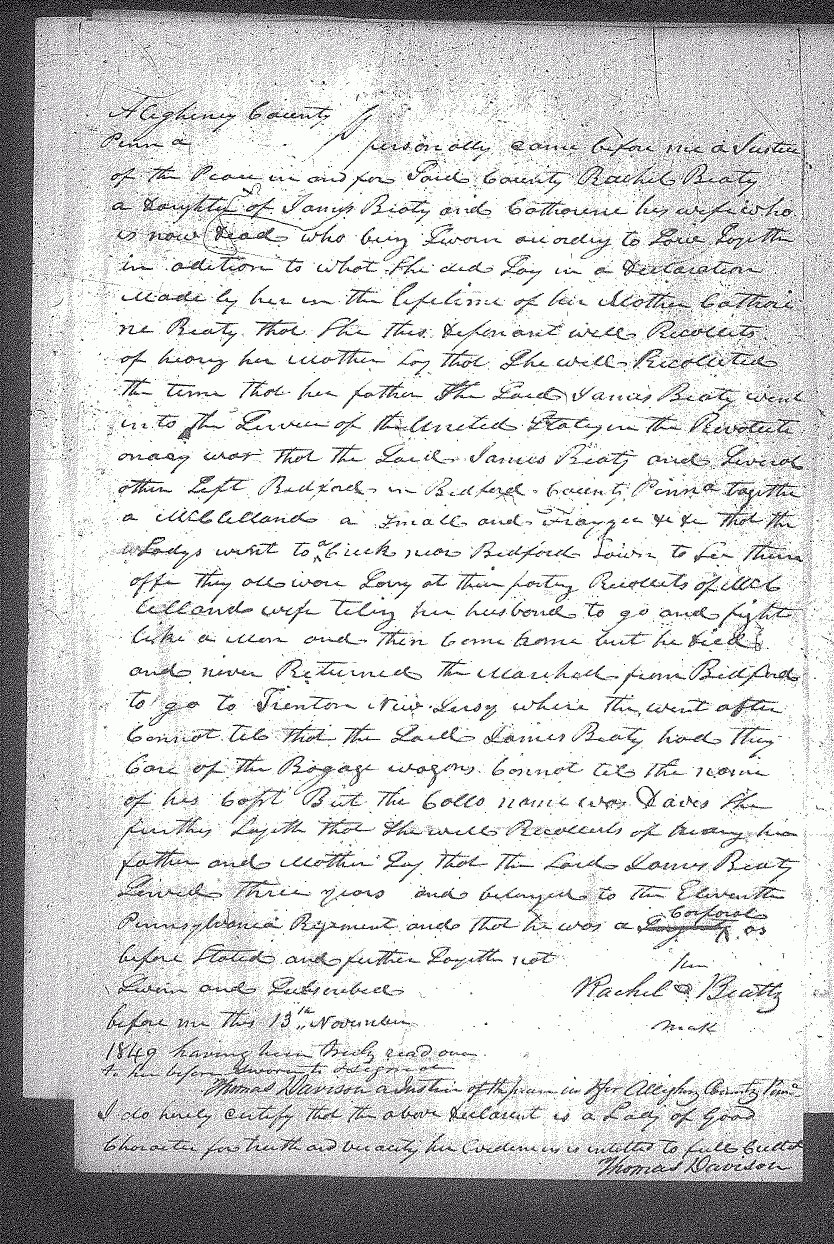 Alegheney County
Penna personally came before me a Justice
of the Peace in and for Said County Rachel Beaty
a Daughter of James Beaty and Catharine his wife who
is now Dead who being Sworn acording to Law Sayeth
in adition to what She did Say in a Declaration
Made by her in the lifetime of her Mother Cathari
ne Beaty that She this deponant well Recollets
of hearing her Mother Say that She well Recolected
the time that her father the Said James Beaty went
into the Service of the United States in the Revoluti
onary war that the Said James Beaty and Several
others Left Bedford in Bedford County Penna togethe
a McClelland a Small and Frazzee &c &c that the
Ladys went to a Creek near Bedford Town to See them
offe they all ware Sorry at their parting Recollets of McC
lelland wife teling her husband to go and fight
like a Man and then Come home but he died
and never Returned the Marched from Bedford
to go to Trenton New Jersy where the went after
Connot tell that the Said James Beaty had they
Care of the Bagage wagons Connot tel the name
of his Capt But the Collo name was Daves She
further Sayeth that She well Recollects of hearing her
father and Mother Say that the Said James Beaty
Served three years and belonged to the Eleventh
Pennsylvania Rigement and that he was a Corporal as
before Stated and further Sayeth not
Sworn and Subscribed
her
Rachel Beatty
mark
before me this 13th November
1849 having been truly read over
to her before sworn to & signed
Thomas Davison a Justice of the peace in & for Alleghny County Penna
I do herely certify that the above Declarent is a Lady of Good
Character for truth and veracity her Evedence is intitled to full Credit
Thomas Davison